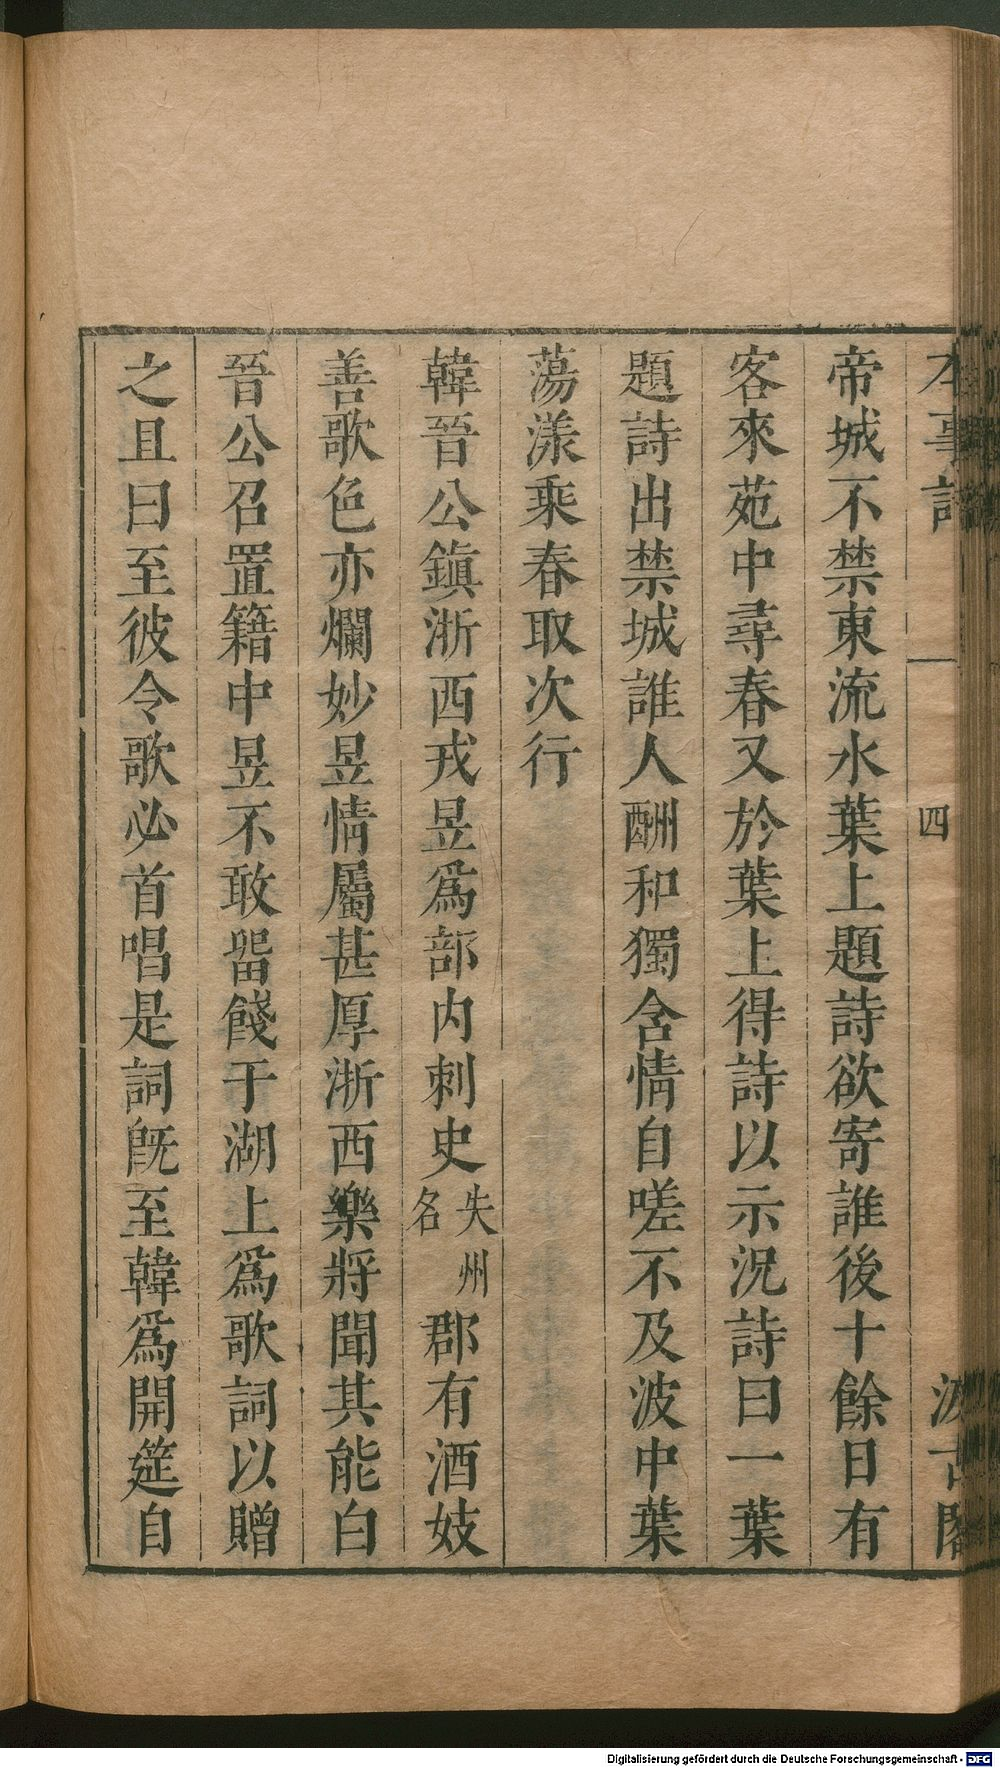 本事詩 四 汲古閣
帝城不禁東流水葉上題詩欲寄誰後十餘日有
客來苑中尋春又於葉上得詩以示況詩曰一葉
題詩出禁城誰人酬和獨含情自嗟不及波中葉
蕩漾乘春取次行
韓晉公鎮浙西戎昱爲部內刺史失州名郡有酒妓
善歌色亦爛妙昱情屬甚厚浙西樂將聞其能白
晉公召置籍中昱不敢畱餞于湖上爲歌詞以贈
之且曰至彼令歌必首唱是詞旣至韓爲開筵自
Digitalisierung gefördert durch die Deutsche Forschungsgemeinschaft - DFG